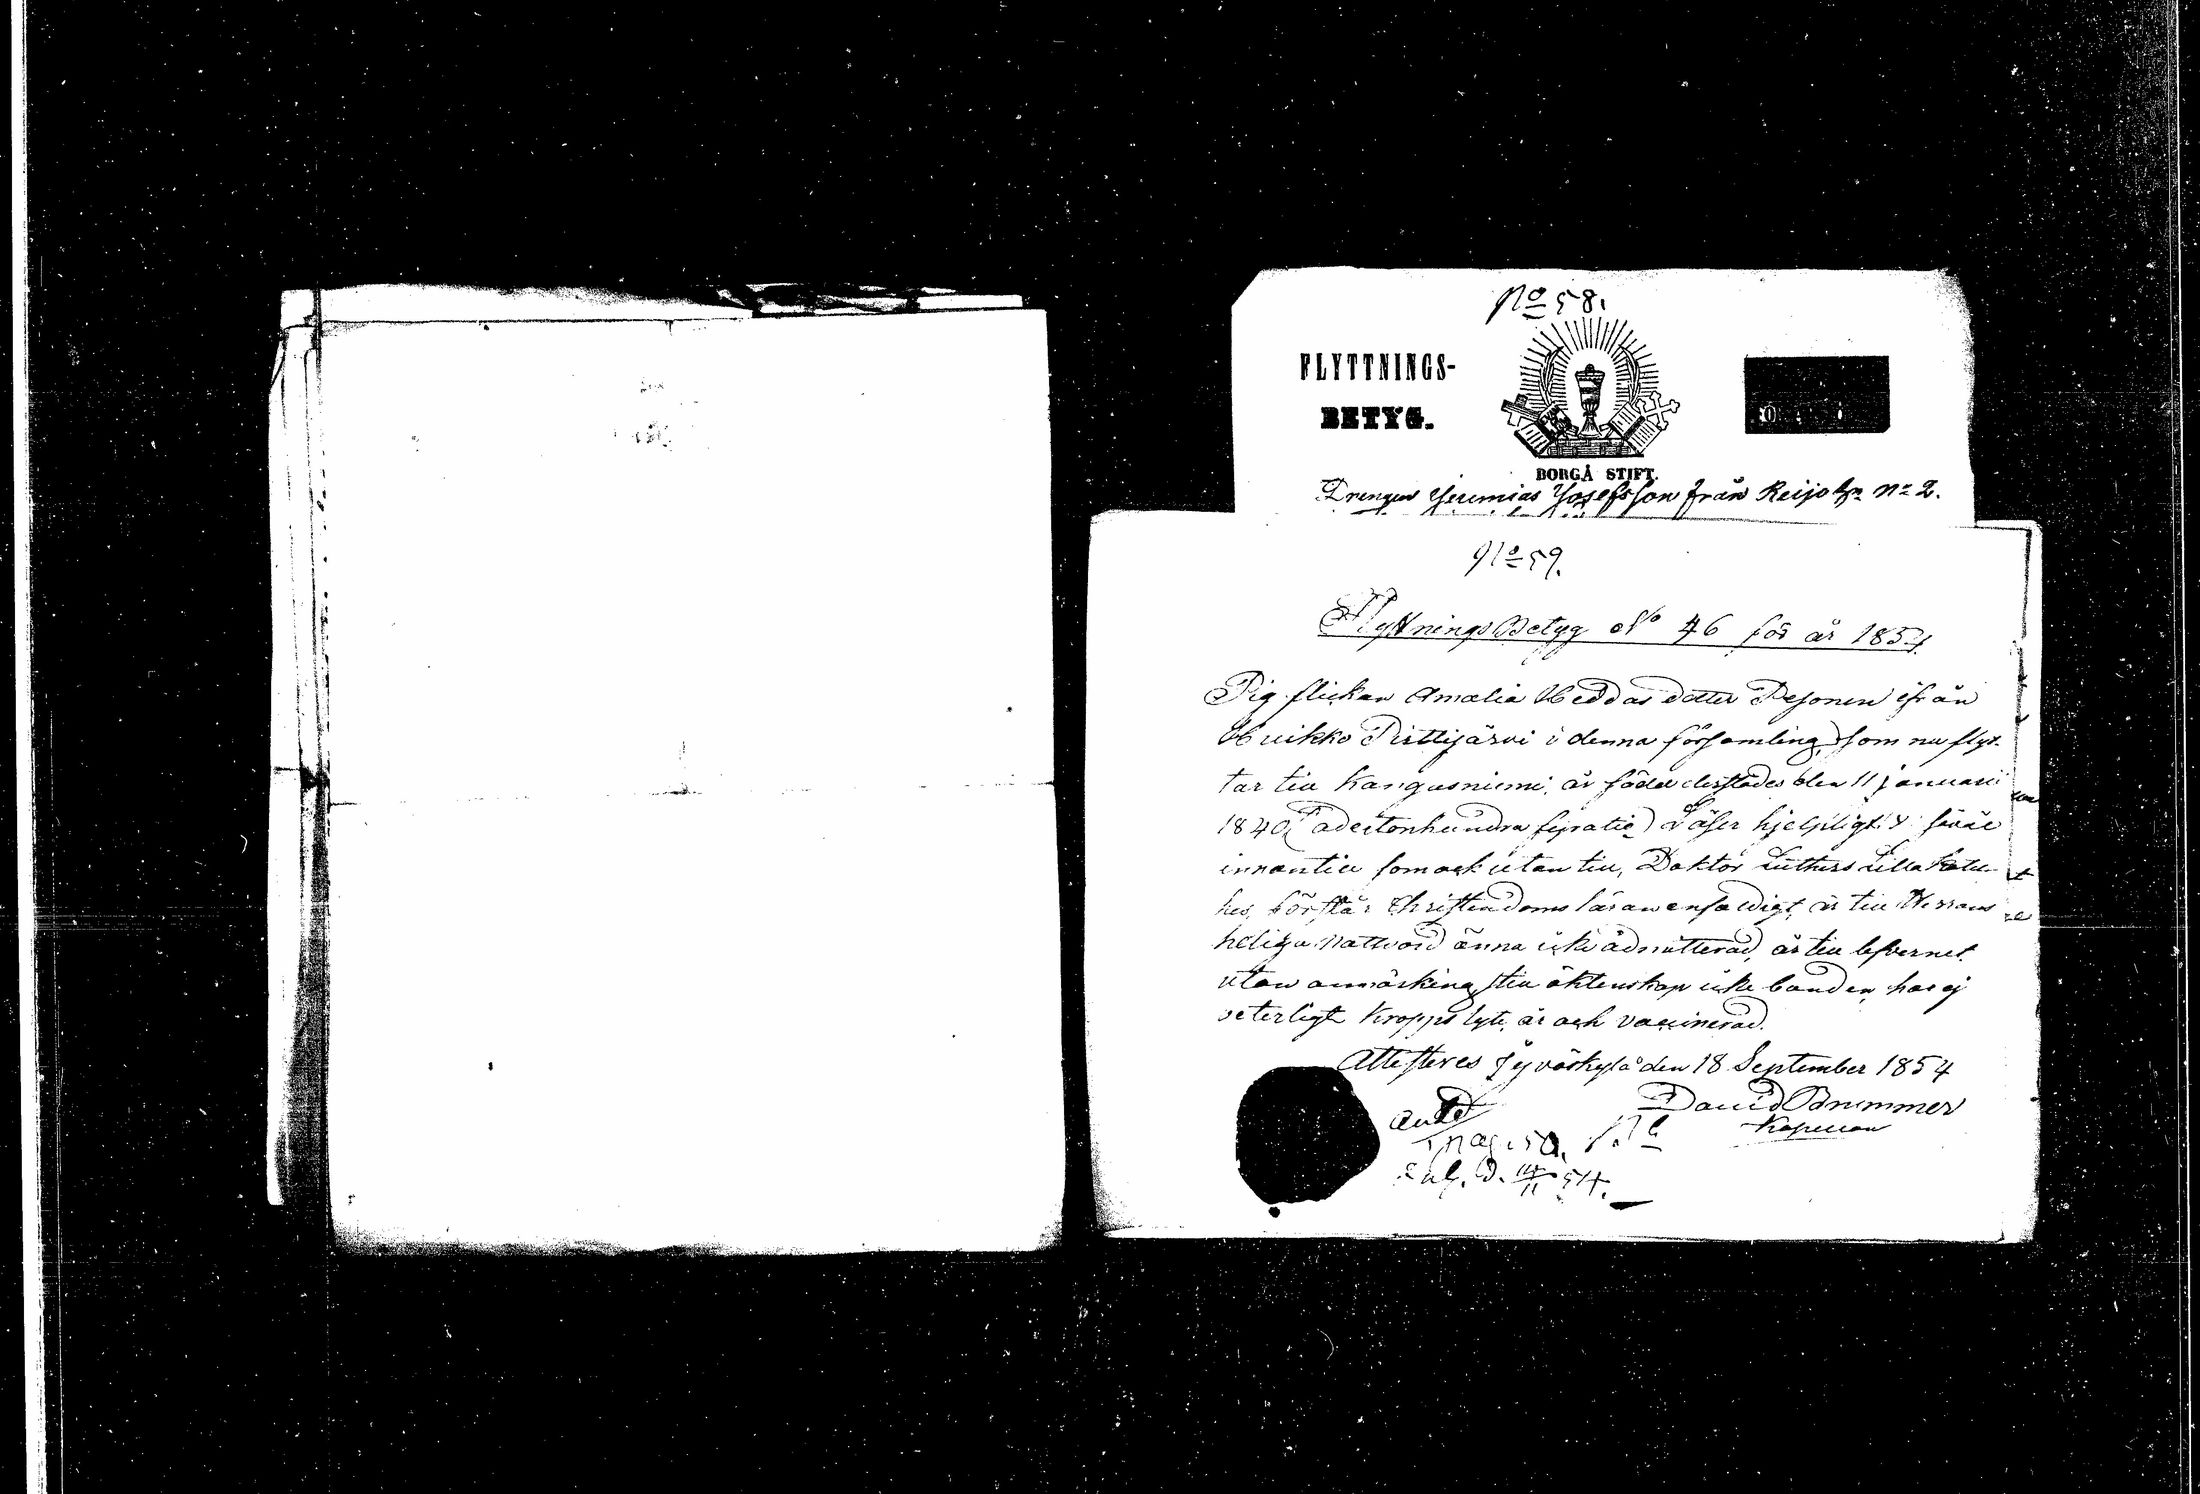 No 58.
FLYTTNINGS-
BETYG.
BORGÅ STIFT.
Drengen Jeremias Josefsson från Reijola No 2.
No 59.
Flyttnings Betyg No 46 för år 1854
Pig flickan Amalia Heddas dotter Pesonen ifrån
Huikko Tirttijärvi i denna församling, som nu flyt-
tar till Kangasniemi, är född derstädes den 11 januarii
1840 (adertonhundra fyratio) Läser hjelpligt såväl
innantill som ock utantill, Doktor Luthers Lilla Kateke-
hes, förstår Christendoms läran enfaldigt, är till Herrans
heliga Nattvard ännu icke admitterad, är till lefvernet
utan anmärkning, till äktenskap icke bunden, har ej
veterligt Kropps lyte, är ock vaccinerad.
Attesteras Jyväskylä den 18 September 1854
David Brummer
Kapellan
54.